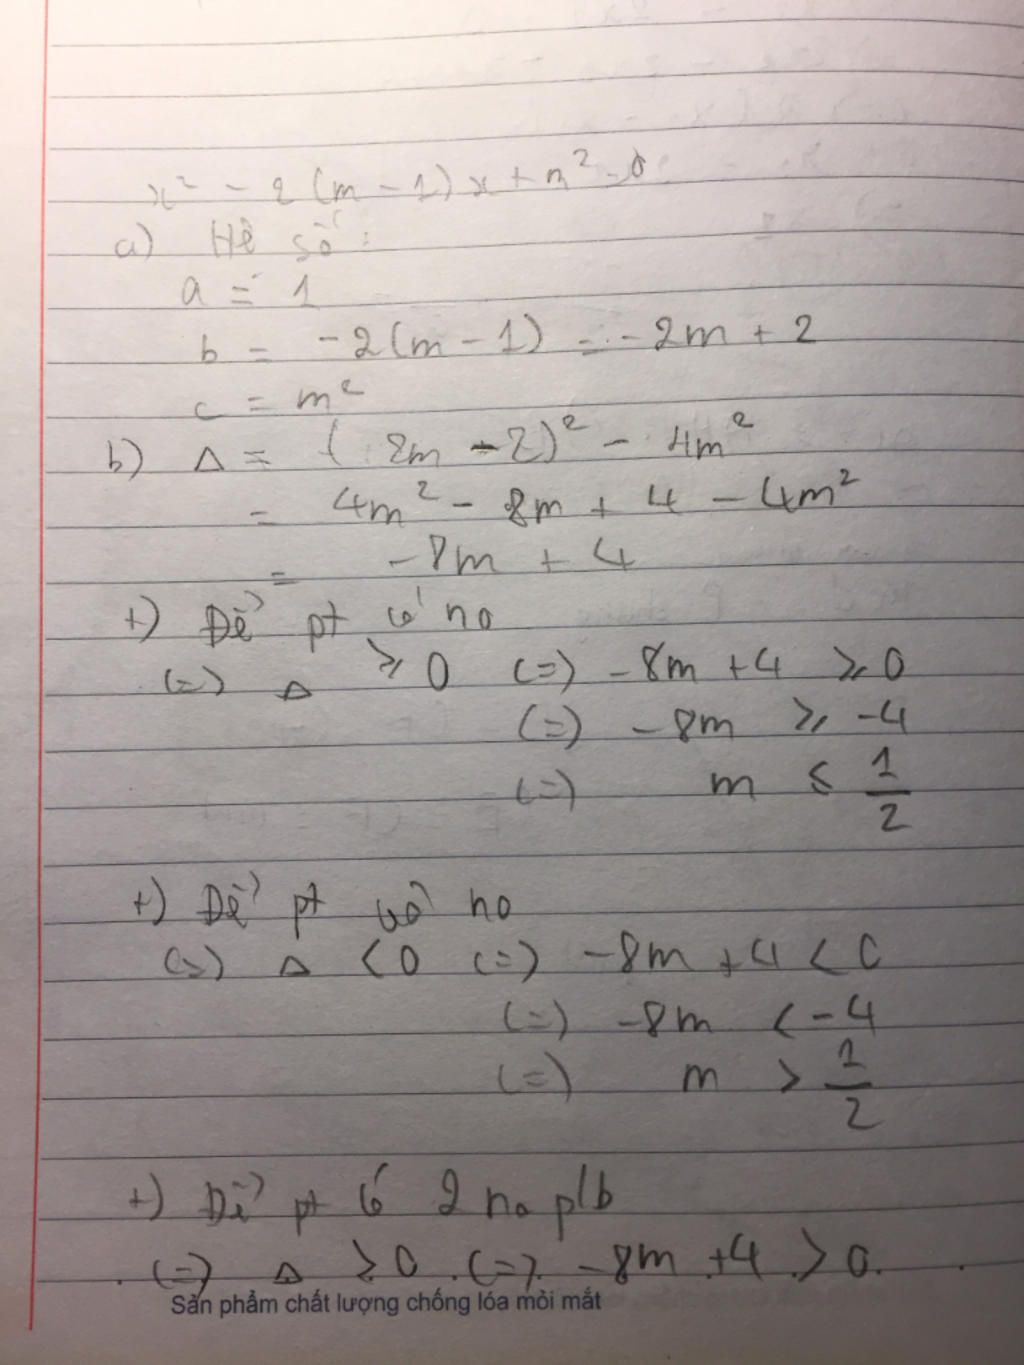 x² - 2(m - 1)x + m² = 0
a) Hệ số :
a = 1
b = -2(m - 1) = -2m + 2
c = m²
b) Δ = (2m - 2)² - 4m²
= 4m² - 8m + 4 - 4m²
= -8m + 4
+) Để pt có no
(=) Δ ⩾ 0 (=) -8m + 4 ⩾ 0
(=) -8m ⩾ -4
(=) m ≤ 1/2
+) Để pt vô no
(=) Δ < 0 (=) -8m + 4 < 0
(=) -8m < -4
(=) m > 1/2
+) Để pt có 2 no p/b
(=) Δ > 0 (=) -8m + 4 > 0
Sản phẩm chất lượng chống lóa mỏi mắt